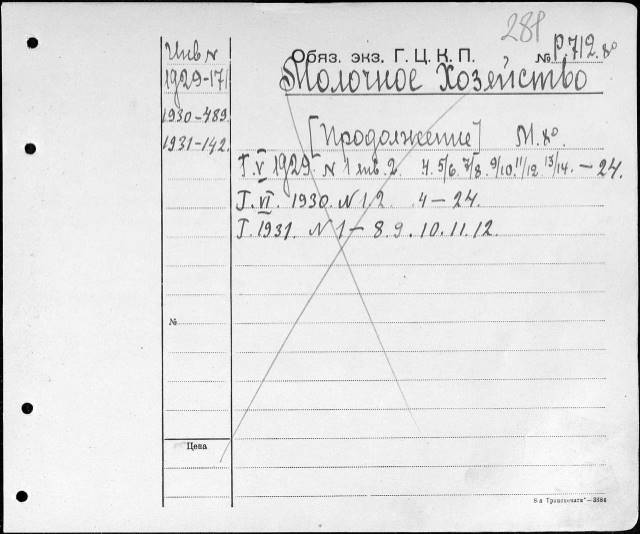 281
Инв №
Обяз. экз. Г. Ц. К. П. № Р.712.8°
1929-171
Молочное Хозейство
1930-489.
1931-142.
[Продолжение] М. 8°.
Г. V 1929. N 1 2. 4. 5/6. 7/8. 9/10. 11/12. 13/14. — 24.
Г. VI. 1930. N 1. 2 4 — 24.
Г. 1931. N 1 — 8. 9. 10. 11. 12.
№
Цена